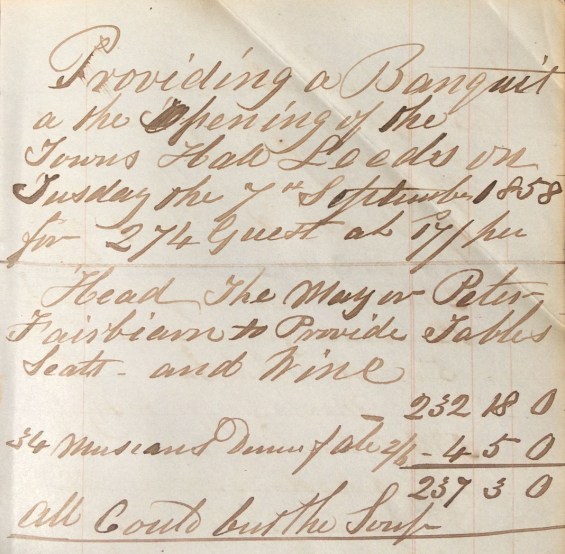 Providing a Banquit
a the Opening of the
Towns Hall Leeds on
Tusday the 7th September 1858
for 274 Guest at 17/ per
Head The Mayor Peter
Fairbiarn to Provide Tables
Seats - and Wine
232 18 0
34 Musicans Dinner ale 2/6 - 4 5 0
237 3 0
All Could but the Soup